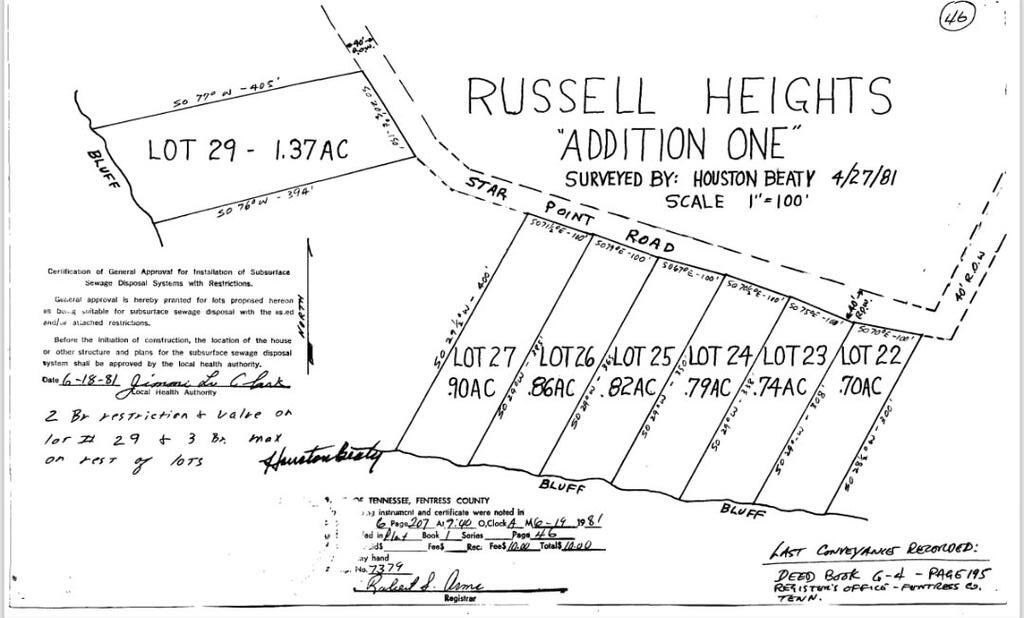 46
RUSSELL HEIGHTS
"ADDITION ONE"
SURVEYED BY: HOUSTON BEATY 4/27/81
SCALE 1"=100'
40'
R.O.W.
SO 77° W - 405'
SO 20½° E - 150'
LOT 29 - 1.37AC
BLUFF
SO 76° W - 394'
STAR POINT ROAD
40' R.O.W
40'
R.O.W.
SO 71½° E - 100'
SO 79° E - 100'
SO 67° E - 100'
SO 70½° E - 100'
SO 75° E - 100'
SO 70° E - 100'
SO 29½° W - 400'
LOT 27
.90AC
SO 29° W - 385'
LOT 26
.86AC
SO 29° W - 365'
LOT 25
.82AC
SO 29° W - 350'
LOT 24
.79AC
SO 29° W - 338'
LOT 23
.74AC
SO 29° W - 308'
LOT 22
.70AC
SO 28½° W - 300'
BLUFF
BLUFF
NORTH
Certification of General Approval for Installation of Subsurface
Sewage Disposal Systems with Restrictions.
General approval is hereby granted for lots proposed hereon
as being suitable for subsurface sewage disposal with the
and/or attached restrictions.
Before the initiation of construction, the location of the house
or other structure and plans for the subsurface sewage disposal
system shall be approved by the local health authority.
Date 6-18-81 Clark
Local Health Authority
2 Br restriction & valve on
lot # 29 & 3 Br. max
on rest of lots
Houston Beaty
OF TENNESSEE, FENTRESS COUNTY
instrument and certificate were noted in
6 Page 207 At 9:40 O,Clock A M 6-19 1981
ed in Plat Book 1 Series Page 46
Fee$ Rec. Fee$ 10.00 Total$ 10.00
hand
No. 7379
Robert S. Arms
Registrar
LAST CONVEYANCE RECORDED:
DEED BOOK G-4 - PAGE 195
REGISTER'S OFFICE - FENTRESS CO.
TENN.